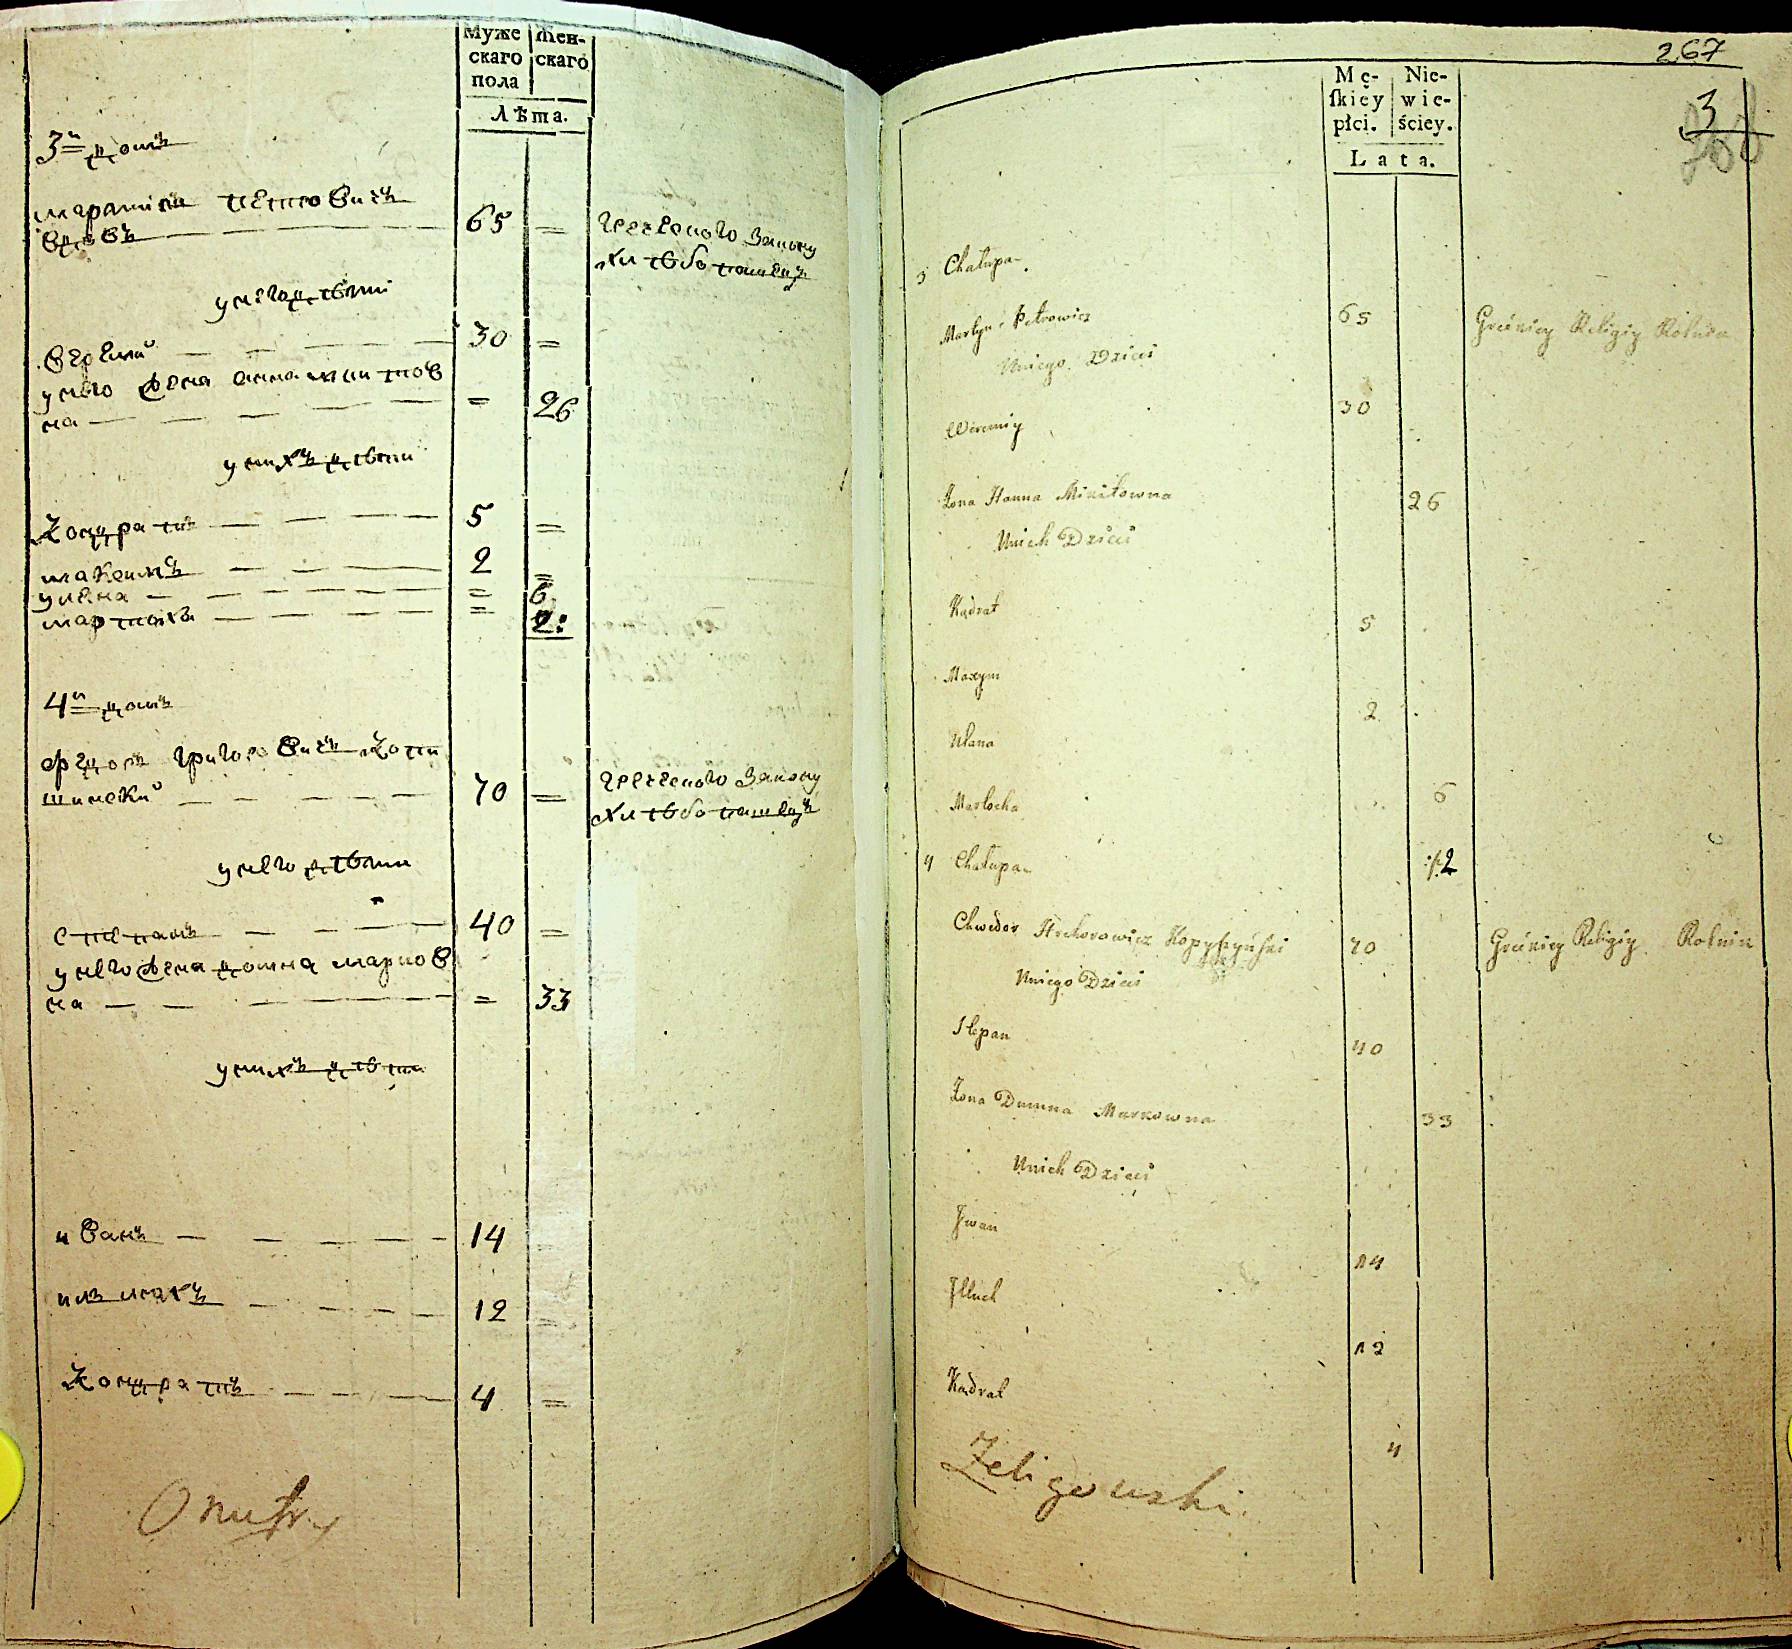 Муже
скаго
пола
Жен-
скаго
Лѣта.
3й домъ
мартинъ петровичъ
вдовъ — — — — 65 =
греческого закону
хлѣбопашецъ
у него дѣти
веремий — — — — 30 =
у него жена анна микитов
на — — — — = 26
у них дѣти
Кондратъ — — — 5 =
максимъ — — — — 2 =
уляна — — — — = 6
мартоха — — — — = 2:
4й домъ
федоръ григоровичъ Копи
шинский — — — — 70 =
греческого закону
хлѣбопашецъ
у него дѣти
степанъ — — — 40 =
у него жена домна марков
на — — — — = 33
у нихъ дѣти
иванъ — — — — 14 =
илляхъ — — — — 12 =
Кондратъ — — — — 4 =
267
Mę-
ſkiey
płci.
Nie-
wie-
ściey.
Lata.
3
3 Chałupa
Martyn Petrowicz 65 Greckiey Religiy Rolnik
U niego Dzieci
Weremiy 30
Żona Hanna Mikitowna 26
U nich Dzieci
Kądrat 5
Maxym 2
Ulana 6
Martocha 2
4 Chałupa
Chwedor Hrehorowicz Kopyszyński 70 Greckiey Religiy Rolnik
U niego Dzieci
Stepan 40
Żona Dumna Markowna 33
U nich Dzieci
Jwan 14
Jlluch 12
Kądrat 4
Zeligowski